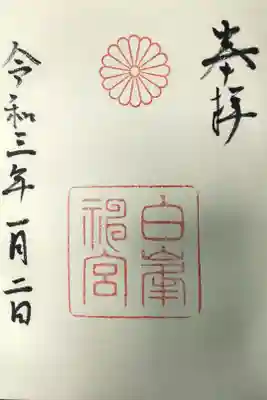 奉拝
白峯
神宮
令和三年一月二日